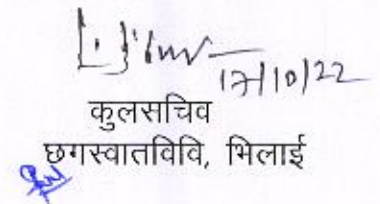 17/10/22
कुलसचिव
छगस्वातविवि, भिलाई